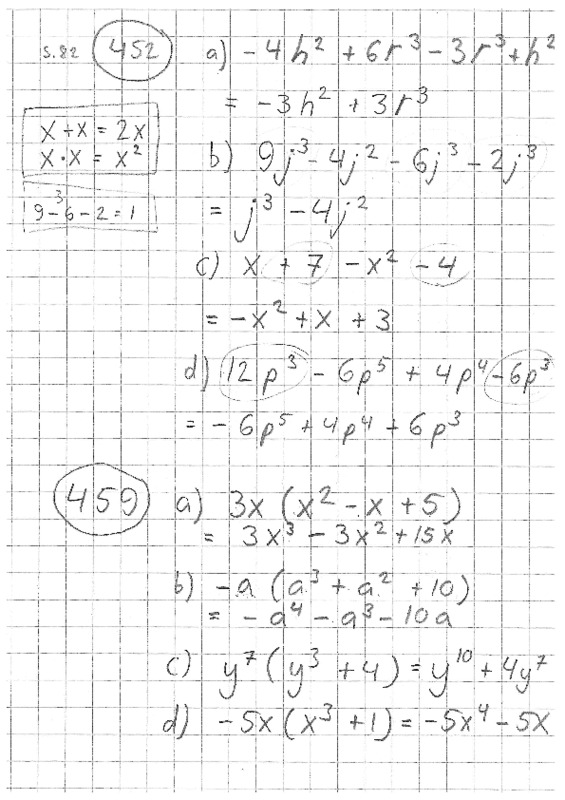 s.82 452 a) -4h² + 6r³ - 3r³ + h²
= -3h² + 3r³
x + x = 2x
x · x = x²
b) 9j³ - 4j² - 6j³ - 2j³
9 - 6 - 2 = 1
3
= j³ - 4j²
c) x + 7 - x² - 4
= -x² + x + 3
d) 12p³ - 6p⁵ + 4p⁴ - 6p³
= -6p⁵ + 4p⁴ + 6p³
459 a) 3x (x² - x + 5)
= 3x³ - 3x² + 15x
b) -a (a³ + a² + 10)
= -a⁴ - a³ - 10a
c) y⁷ (y³ + 4) = y¹⁰ + 4y⁷
d) -5x (x³ + 1) = -5x⁴ - 5x